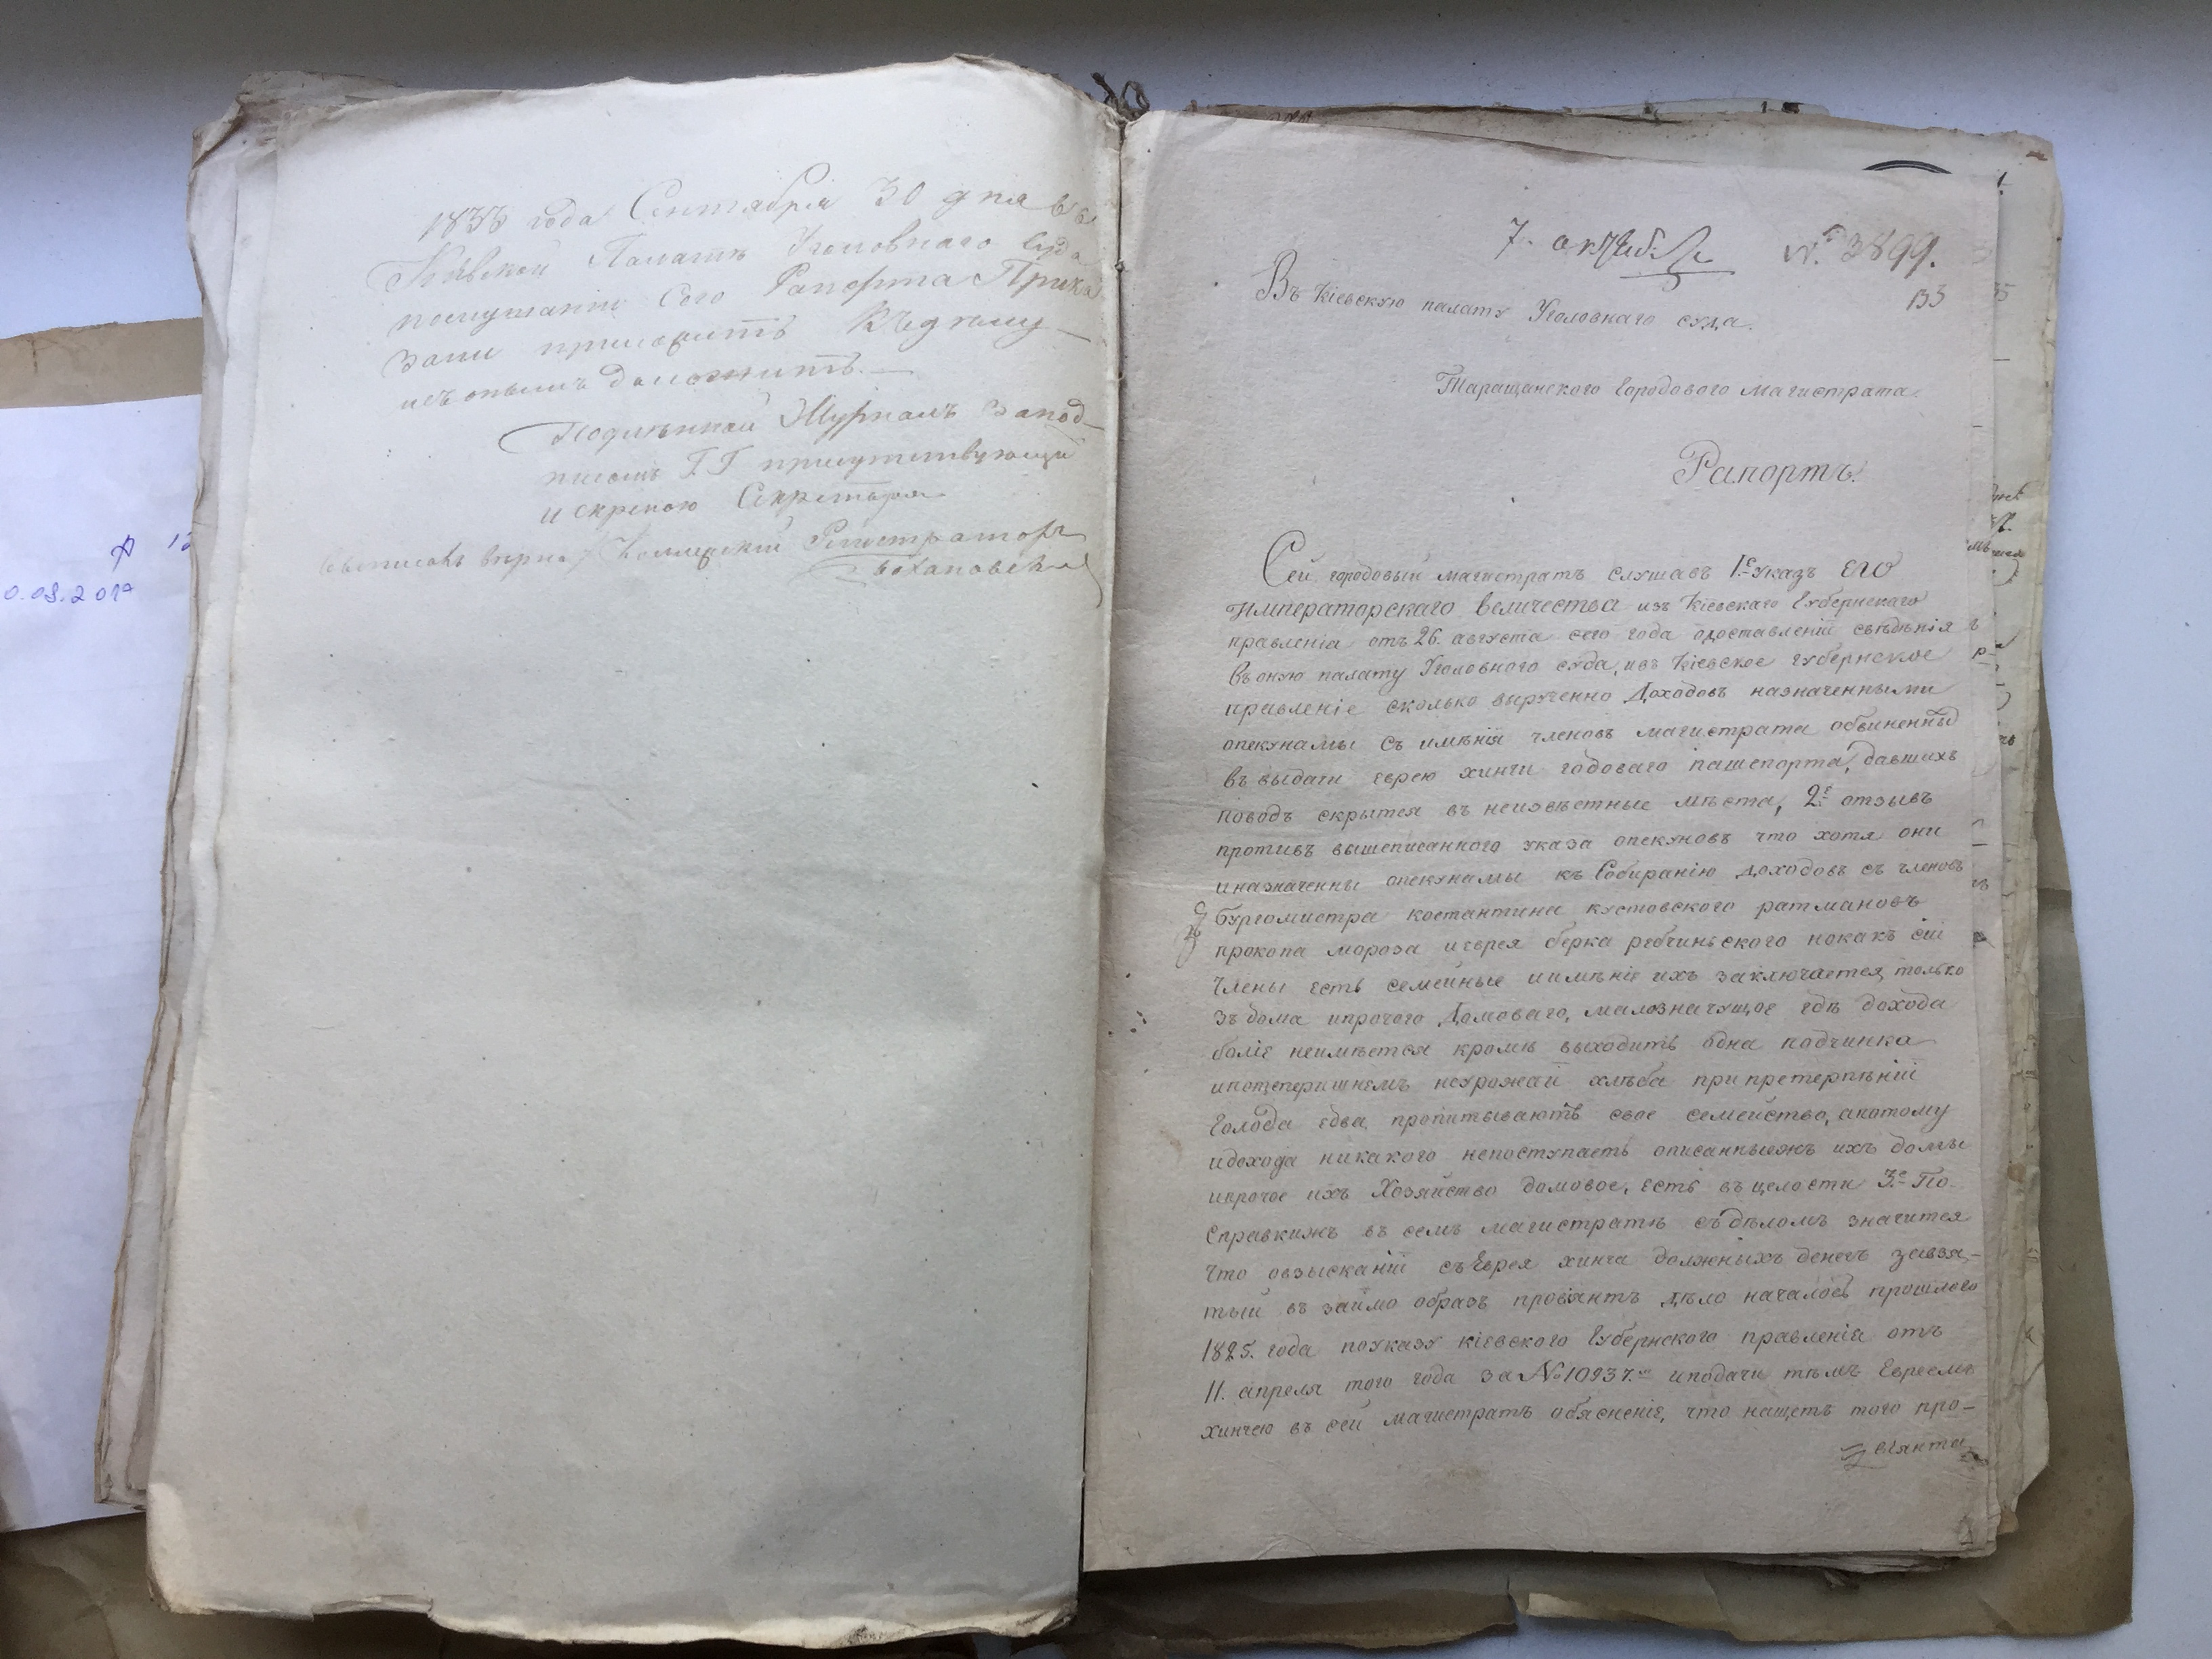 1833 года Сентября 30 дня въ
Кіевской Палатѣ Уголовнаго Суда
послушаніи Сего Рапорта Прика
зали приобщить Къ дѣлу
и съ онымъ доложить.
Подлинной Журналъ за под-
писомъ Г.Г присутствующи
и скрепою Секретаря
Съ подписомъ вѣрно Коллежскій Регистраторъ
7. октября № 3899.
133
Въ Кіевскую палату Уголовнаго суда.
Таращанского Городового Магистрата.
Рапортъ.
Сей городовый магистратъ слушавъ 1е указъ ЕГО
Императорскаго величества изъ Кіевскаго Губернскаго
правленіа отъ 26. августа сего года одоставленіи свѣдѣнія
въ оную палату Уголовного суда, ивъ Кіевское губернское
правленіе сколько вырученно Доходовъ назначенными
опекунамы съ имѣнія членовъ магистрата обвиненны
въ выдачи еврею хинчи годоваго пашепорта, давшихъ
поводъ скрытся въ неизвѣстные мѣста, 2е отзывъ
противъ вышеписанного указа опекуновъ что хотя они
иназначенны опекунамы къ Собиранію доходовъ съ членовъ
бургомистра костантина кустовского ратмановъ
прокопа мороза иеврея берка ребчиньского нокакъ сіи
Члены есть семейные иимѣніе ихъ заключается только
зъ дома ипрочого Домоваго, малозначущое гдѣ дохода
боліе неимѣется кромѣ выходить одна подчинка
ипотеперишнемъ неурожаи хлѣба при претерпѣніи
Голода едва пропитываютъ свое семейство, апотому
идохода никакого непоступаетъ описанныежъ ихъ домы
ипрочое ихъ Хозяйство домовое, есть въ целости 3е По
Справкижъ въ семъ магистратѣ съ дѣломъ значится
Что овзысканіи съ Еврея хинча должныхъ денегъ завзя-
тый въ займо образъ провіянтъ дѣло началось прошлого
1825. года поуказу кіевского Губернского правленіа отъ
11. апреля того года за №10937.мъ иподачи тѣмъ Евреемъ
хинчею въ сей магистратъ обясненіе, что нащетъ того про-
віянта